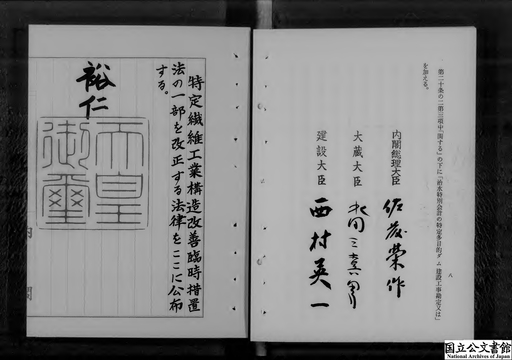 第二十条の二第三項中「関する」の下に「治水特別会計の特定多目的ダム建設工事勘定又は」
を加える。
八
内閣総理大臣 佐藤榮作
大蔵大臣
建設大臣 西村英一
特定繊維工業構造改善臨時措置
法の一部を改正する法律をここに公布
する。
裕仁
天皇
御璽
内閣
国立公文書館
National Archives of Japan